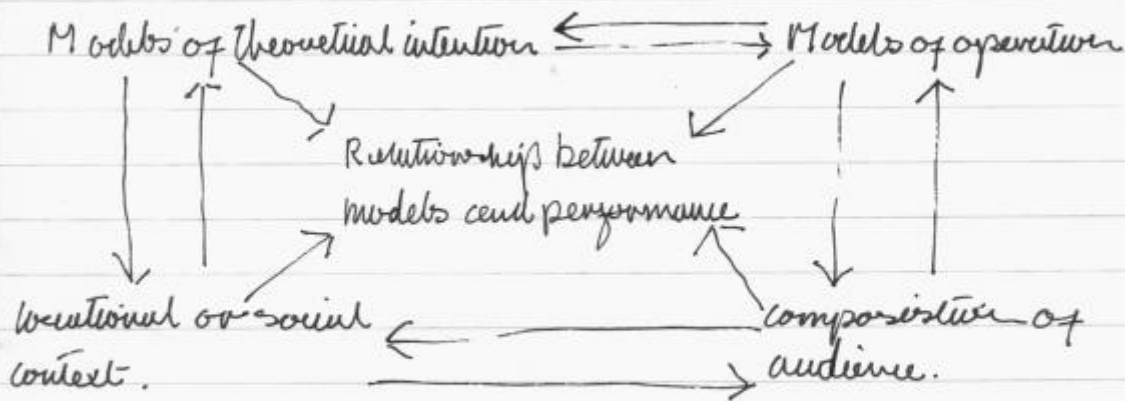 Models of theoretical intention Models of operation
Relationship between
models and performance
locational or social composition of
context. audience.